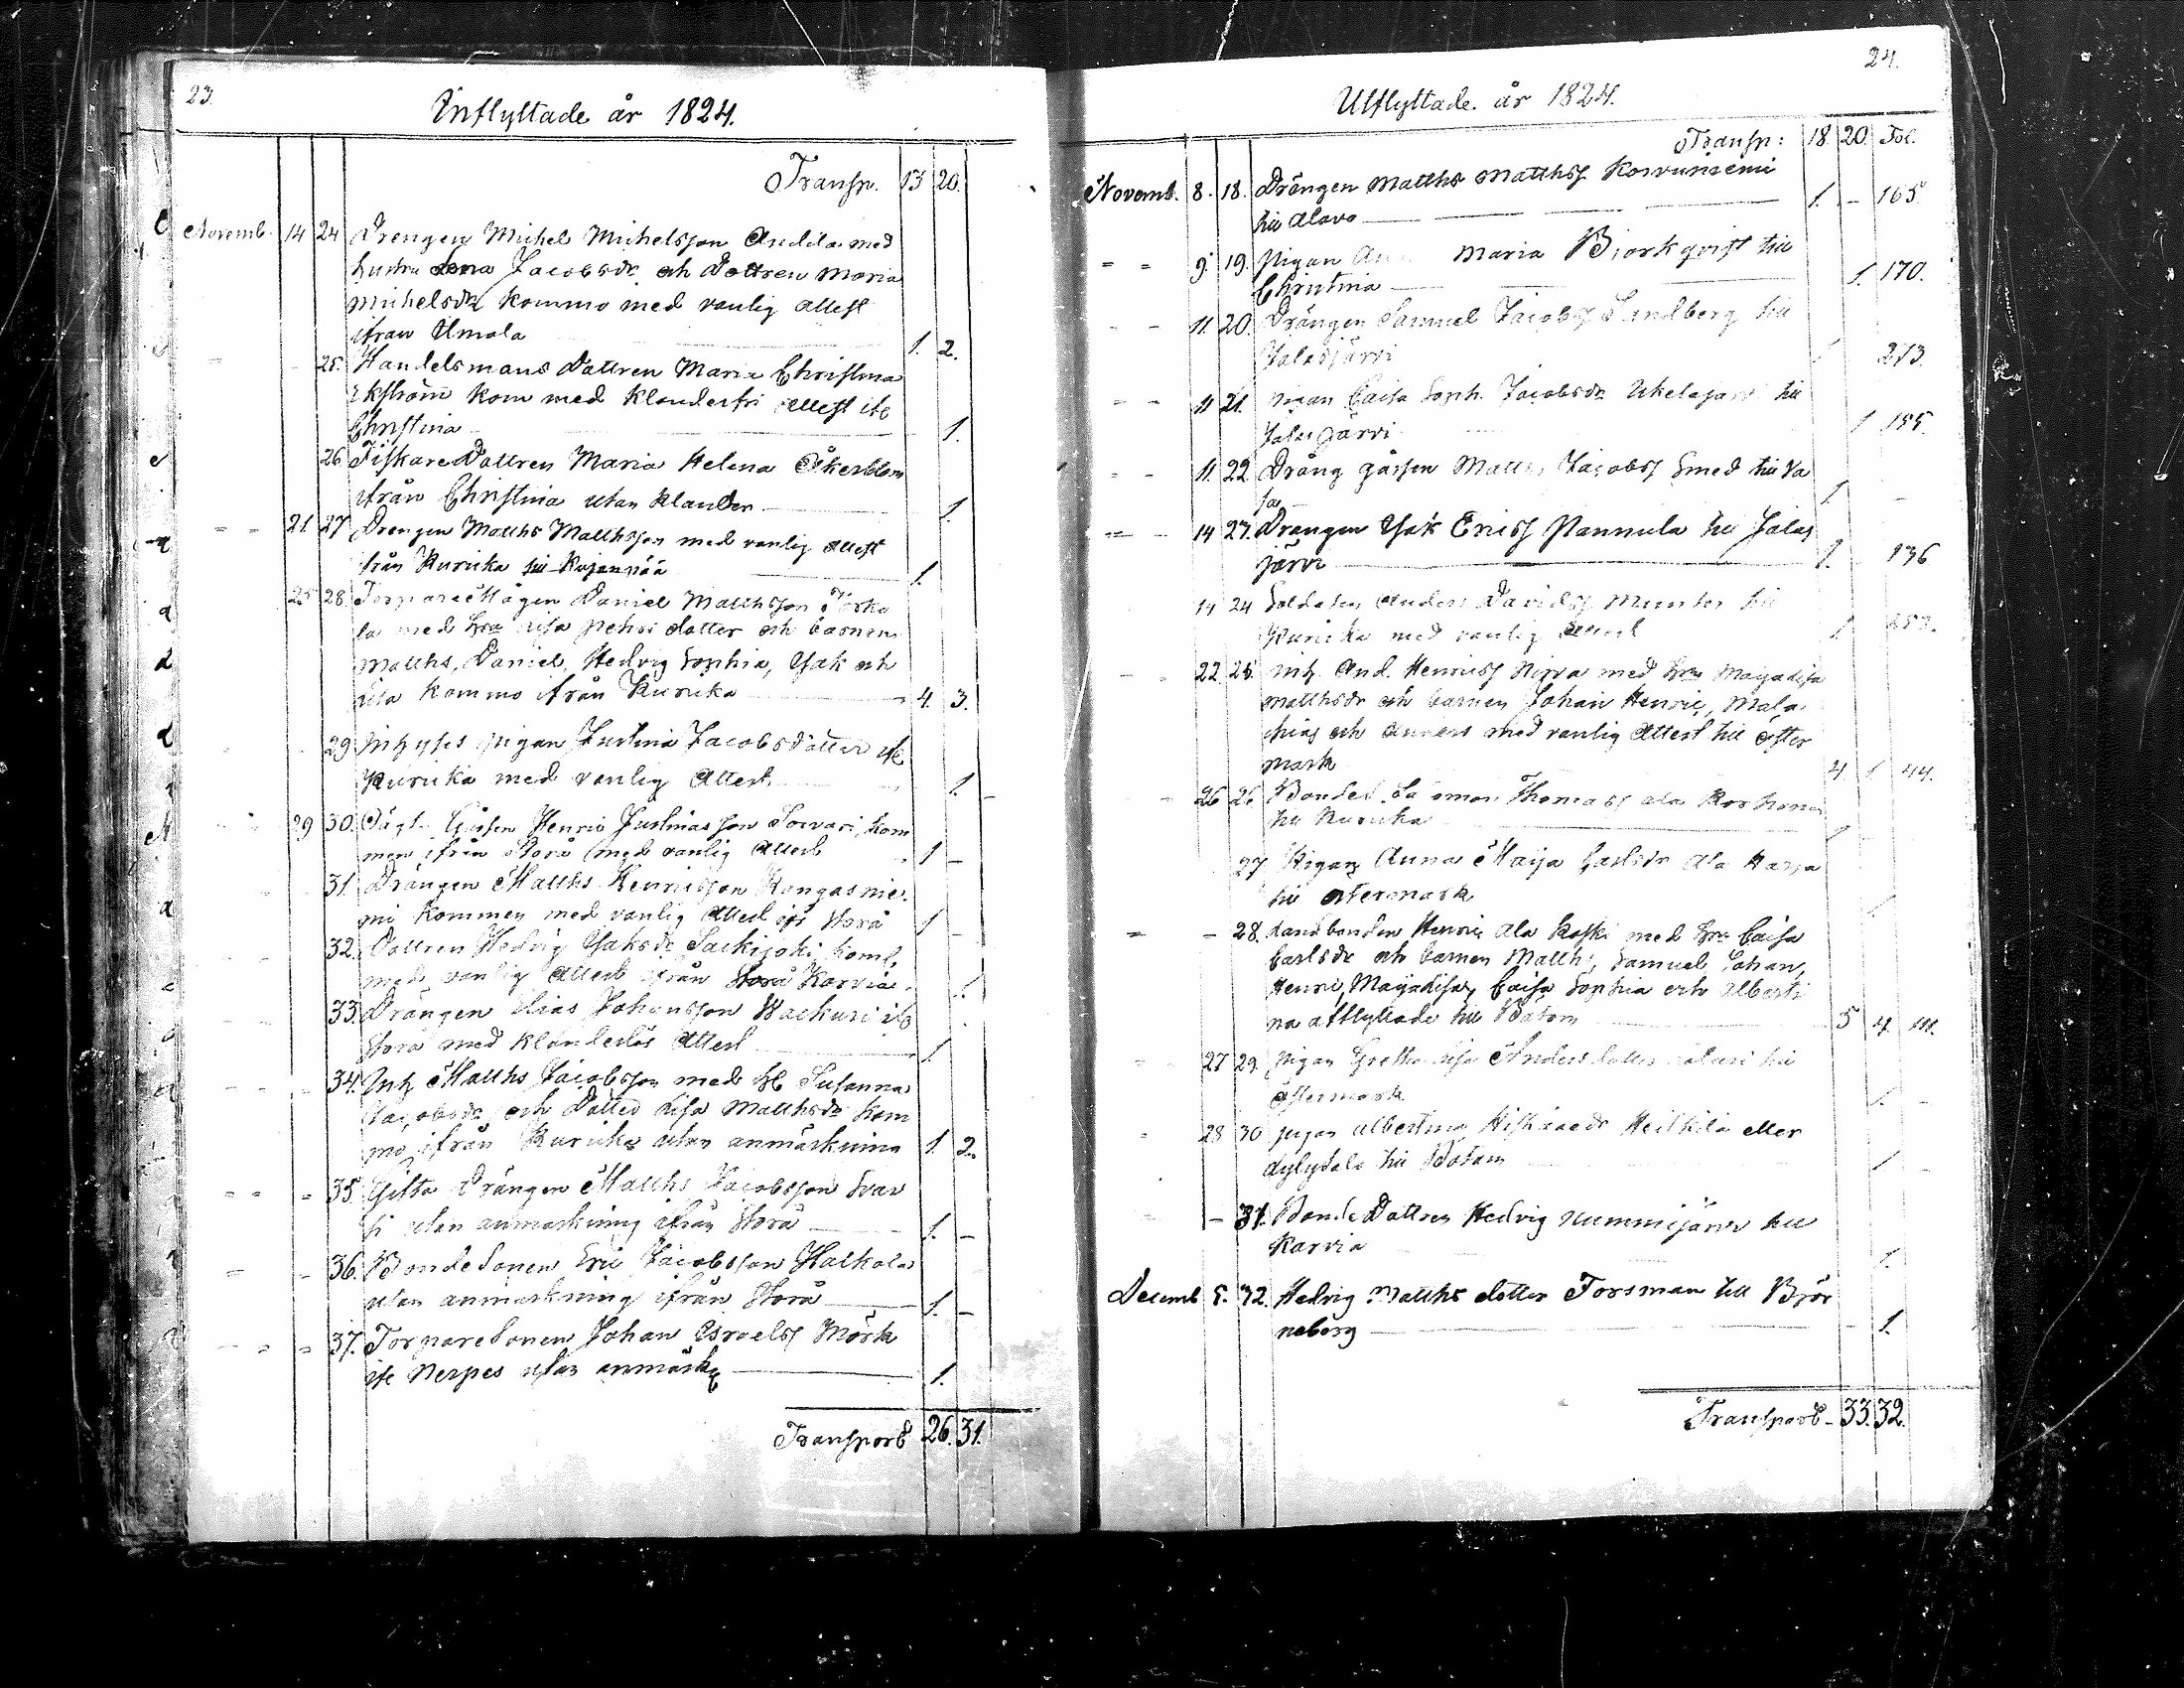 23.
Inflyttade år 1824.
Transp. 13 20.
Novemb. 14 24 Drengen Michel Michelsson Andila med
hustru Lena Jacobsdr och Dottren Maria
Michelsdr kommo med vanlig attest
ifran Ilmola 1. 2.
25. Handelsmans Dottren Maria Christina
Ekström kom med klanderfri attest ifr
Christina 1.
26 Fiskare Dottren Maria Helena Åkerblom
ifrån Christina utan klander 1.
21 27 Drengen Matths Matthsson med vanlig attest
från Kuricka till Kujanpää 1.
25 28 Torpare Mågen Daniel Matthsson
med hru Lisa Pehrs dotter och barnen
Matths, Daniel, Hedvig Sophia, Isak och
Lisa kommo ifrån Kuricka 4. 3.
29 Inhyses pigan Justina Jacobsdotter ifr
Kuricka med vanlig Attest 1.
29 30. Gåssen Henric Justinasson Sorvari kom
men ifrån Storå med vanlig Attest 1 –
31. Drängen Matths Henricsson Kangasnie
mi kommen med vanlig Attest ifr Storå 1 –
32. Dottren Hedvig Isaksdr Särkijoki kom
med vanlig Attest ifrån Storå Karvia 1.
33. Drängen Elias Johansson Wachuri ifr
Storå med klanderlös Attest 1.
34. Inh Matths Jacobsson med H Susanna
Jacobsdr och Dotter Lisa Matthsdr kom
mo ifrån Kuricka utan anmärkning 1. 2.
35. Gifta Drängen Matths Jacobsson Svar
ti utan anmärkning ifrån Storå 1. –
36. Bonde Sonen Eric Jacobsson Halkola
utan anmärkning ifrån Storå 1. –
37. Torpare Sonen Johan Israelss Mörk
ifr Nerpes utan anmärk 1.
Transport 26. 31.
24.
Utflyttade år 1824.
Transp: 18. 20. Fol.
Novemb. 8. 18. Drängen Matths Matthss Korvuniemi
till Alavo 1. – 165.
9. 19. Pigan Maria Björkqvist till
Christina 1. 170.
11. 20. Drängen Samuel Jacobss Sandberg till
Jalasjärvi 1 273.
11 21. Pigan Caisa Soph. Jacobsdr till
Jalasjärvi 1 155.
11. 22. Dräng gåssen Matths Jacobss Smed till Va
sa 1 –
14 23. Drängen Isak Ericss Pannula till Jalas
järvi 1. 136
14 24 Soldaten Anders Davidss Munter till
Kuricka med vanlig Attest 1 253.
22 25. Inh. And. Henricss Nirva med hru Majalisa
Matthsdr och barnen Johan Henric, Mala
chias och Anders med vanlig Attest till Öster
mark 4 1 44.
26 26 Bonden Salomon Thomass Ala Korhonen
till Kuricka 1
27 Pigan Anna Maija Carlsdr Ala Harja
till Östermark 1
– 28. Landbonden Henric Ala Koski med hru Caisa
Carlsdr och barnen Matths, Samuel Johan,
Henric, Majalisa, Caisa Sophia och Alberti
na afflyttade till Bötom 5 4.
27 29. Pigan Gretha Lisa Anders dotter till
Östermark 1. –
28 30 Pigan Albertina Heikkilä eller
till Bötom 1 –
– 31. Bonde Dottren Hedvig Nummijärvi till
Karvia 1.
Decemb 5. 32. Hedvig Matths dotter Forsman till Björ
neborg – 1.
Transport – 33. 32.